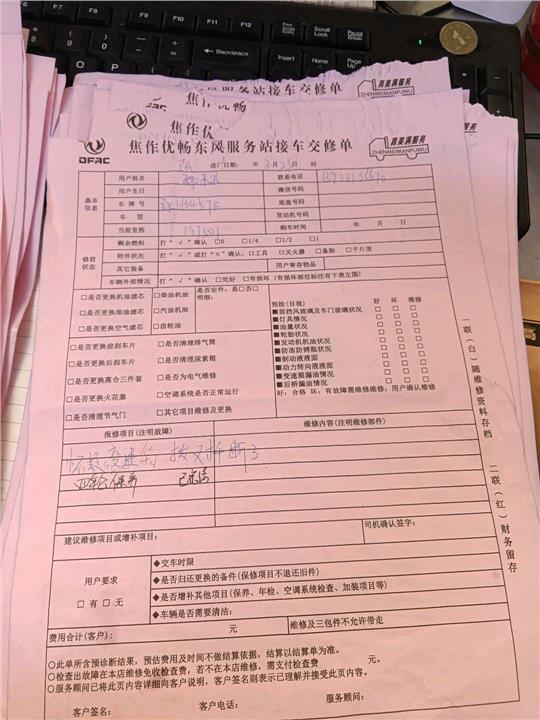 Backspace
Print Screen
SysRq
Scroll Lock
Pause
Insert
Home
End
服务站接车交修单
真美满服务
ZHENMEIMANFUWU
焦作优畅
DFAC
焦作优
真美满服务
ZHENMEIMANFUWU
DFAC
焦作优畅东风服务站接车交修单
进厂日期: 年 3月 日 时
基本信息
用户姓名 联系电话
用户生日 微信号码
车牌号 底盘号码
车型 发动机号码
当前里程 197501 购车时间 年 月 日
修前状态
剩余燃料 打"√"确认 □0 □1/4 □1/2 □1
附件状况 打"√"或打"×"确认:□工具 □灭火器 □备胎 □千斤顶
其它装备 用户寄存物品
车辆外部情况 打"√"确认 □完好 □有损坏(有循环部位标注有下表左图)
□是否更换机油滤芯 □柴油机油 是否定件:是□否□
□是否更换柴油滤芯 □汽油机油 明细:
□是否更换空气滤芯 □齿轮油
□是否更换前刹车片 □是否清理排气筒
□是否更换后刹车片 □是否清理尿素箱
□是否更换离合三件套 □是否为电气维修
□是否更换火花塞 □空调系统是否正常运行
□是否清理节气门 □其它项目维修及更换
预检(目视) 好 坏 维修
■前挡风玻璃及车门玻璃状况 □ □ □
■灯具情况 □ □ □
■油量状况 □ □ □
■轮胎状况 □ □ □
■发动机机油状况 □ □ □
■防冻防锈瓶状况 □ □ □
■制动液液面 □ □ □
■动力转向液液面 □ □ □
■变速箱漏油情况 □ □ □
■后桥漏油情况 □ □ □
好:合格 坏:有故障需维修维修:用户确认维修
报修项目(注明故障) 维修内容(注明维修部件)
怀疑变速箱 拨叉折断了
四轮保养
建议维修项目或增补项目: 司机确认签字:
用户要求
□有 □无
◆交车时限
◆是否归还更换的备件(保修项目不退还旧件)
◆是否增补其他项目(保养、年检、空调系统检查、加装项目等)
◆车辆是否需要清洁:
费用合计(客户): 元 维修及三包件不允许带走
○此单所含预诊断结果,预估费用及时间不做结算依据,结算以结算单为准。
○检查出故障在本店维修免收检查费,若不在本店维修,需支付检查费 元。
○服务顾问已将此页内容详细向客户说明,客户签名则表示已理解并接受此页内容。
客户签名: 客户电话: 服务顾问:
一联(白)随维修资料存档 二联(红)财务留存